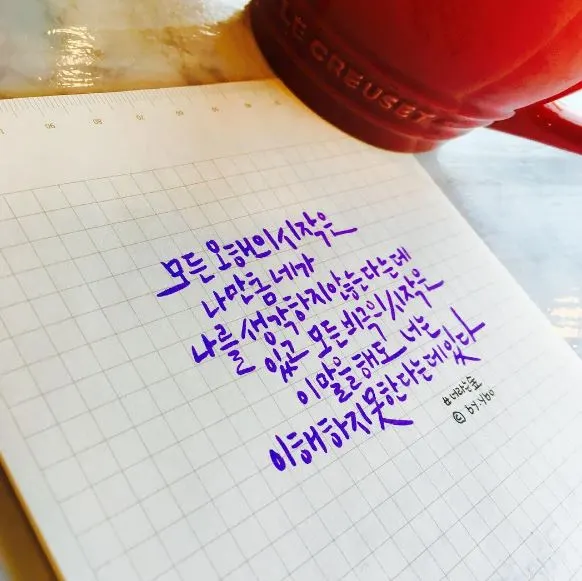 LE CREUSET
모든 오해의 시작은
나만큼 네가
나를 생각하지 않는다는데
있고 모든 비극의 시작은
이 말을 해도 너는
이해하지 못한다는데 있다
#너라는숲
© by.ybo